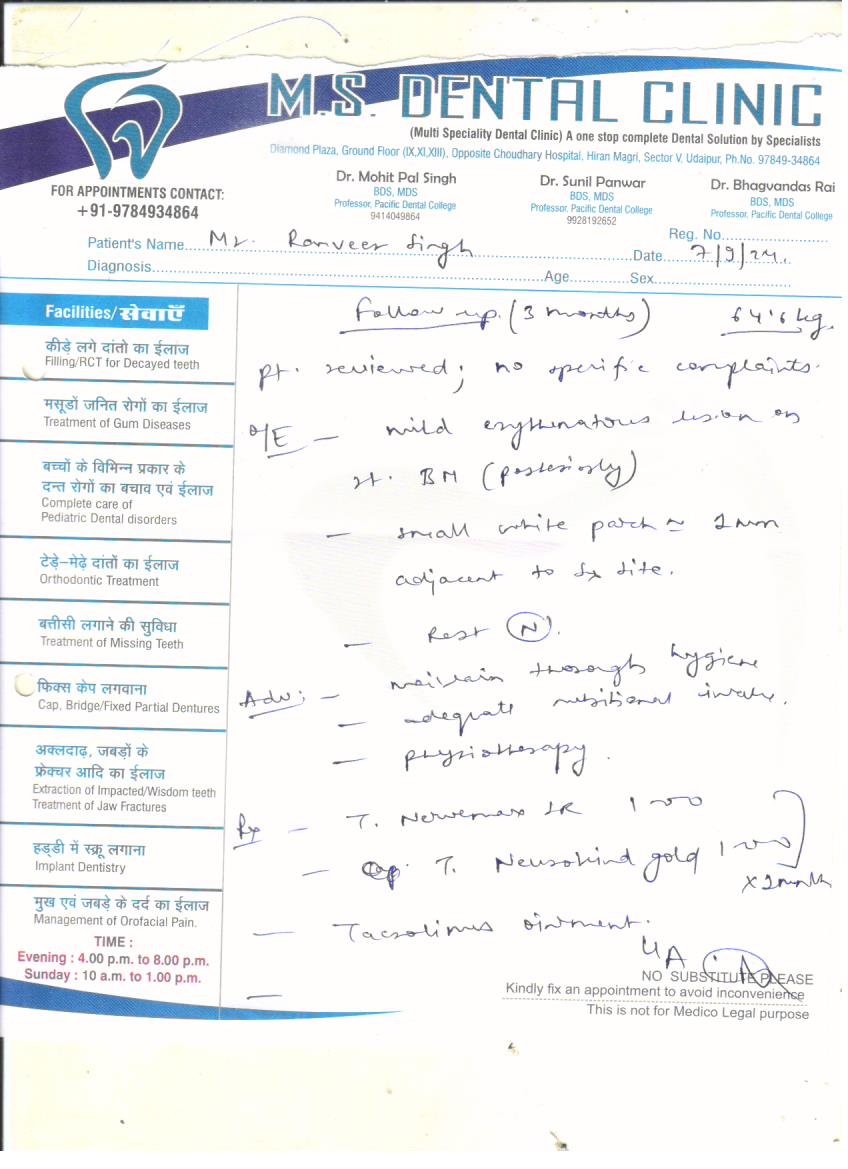 M.S. DENTAL CLINIC
(Multi Speciality Dental Clinic) A one stop complete Dental Solution by Specialists
Diamond Plaza, Ground Floor (IX,XI,XIII), Opposite Choudhary Hospital, Hiran Magri, Sector V, Udaipur, Ph.No. 97849-34864
FOR APPOINTMENTS CONTACT:
+91-9784934864
Dr. Mohit Pal Singh
BDS, MDS
Professor, Pacific Dental College
9414049864
Dr. Sunil Panwar
BDS, MDS
Professor, Pacific Dental College
9928192652
Dr. Bhagvandas Rai
BDS, MDS
Professor, Pacific Dental College
Reg. No.
Patient's Name Mr. Ranveer Singh Date 7/9/24.
Diagnosis Age Sex
Facilities/सेवाएँ
कीड़े लगे दांतो का ईलाज
Filling/RCT for Decayed teeth
मसूडों जनित रोगों का ईलाज
Treatment of Gum Diseases
बच्चों के विभिन्न प्रकार के
दन्त रोगों का बचाव एवं ईलाज
Complete care of
Pediatric Dental disorders
टेड़े-मेढ़े दांतों का ईलाज
Orthodontic Treatment
बत्तीसी लगाने की सुविधा
Treatment of Missing Teeth
फिक्स केप लगवाना
Cap, Bridge/Fixed Partial Dentures
अक्लदाढ़, जबड़ों के
फ्रेक्चर आदि का ईलाज
Extraction of Impacted/Wisdom teeth
Treatment of Jaw Fractures
हड्डी में स्क्रू लगाना
Implant Dentistry
मुख एवं जबड़े के दर्द का ईलाज
Management of Orofacial Pain.
TIME :
Evening : 4.00 p.m. to 8.00 p.m.
Sunday : 10 a.m. to 1.00 p.m.
Follow up (3 months) 64.6 kg.
pt. reviewed; no specific complaints.
O/E - mild erythematous lesion on
rt. BM (posteriorly)
- small white patch ≈ 2mm
adjacent to Sx site.
- Rest (N).
Adv: - maintain thorough hygiene
- adequate nutritional intake.
- physiotherapy.
Rx - T. Nervemax SR 1
- T. Neurokind gold 1
- Tacrolimus ointment.
NO SUBSTITUTE PLEASE
Kindly fix an appointment to avoid inconvenience
This is not for Medico Legal purpose